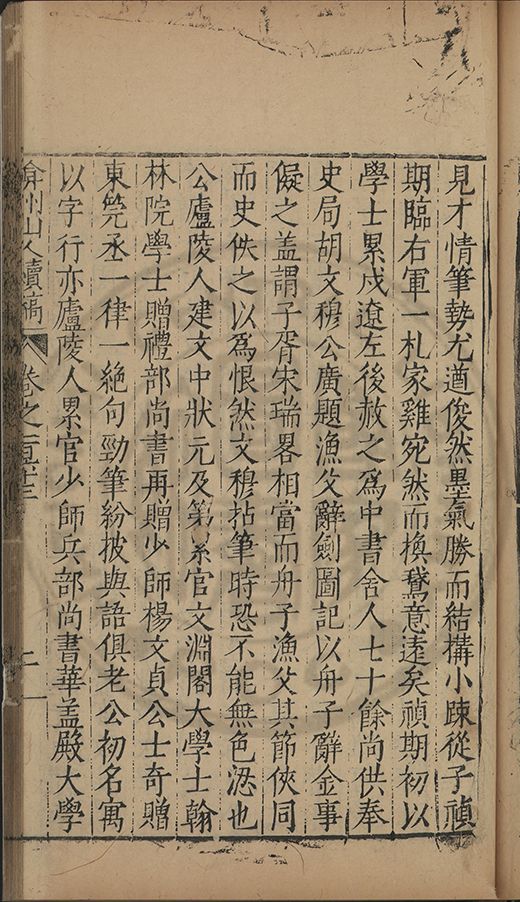 見才情筆勢尤遒俊然墨氣勝而結構小踈從子禎
期臨右軍一札家雞宛然而換鵞意遠矣禎期初以
學士累戍遼左後赦之爲中書舍人七十餘尚供奉
史局胡文穆公廣題漁父辭劍圖記以舟子辭金事
儗之盖謂子胥宋瑞畧相當而舟子漁父其節俠同
而史佚之以爲恨然文穆拈筆時恐不能無色涊也
公廬陵人建文中狀元及第累官文淵閣大學士翰
林院學士贈禮部尚書再贈少師楊文貞公士奇贈
東筦丞一律一絶句勁筆紛披與語俱老公初名寓
以字行亦廬陵人累官少師兵部尚書華盖殿大學
弇州山人續稿 卷之一百六十二